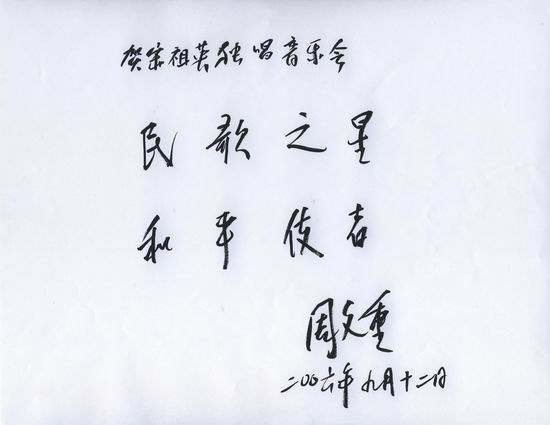 贺宋祖英独唱音乐会
民歌之星
和平使者
周文重
二00六年九月十二日